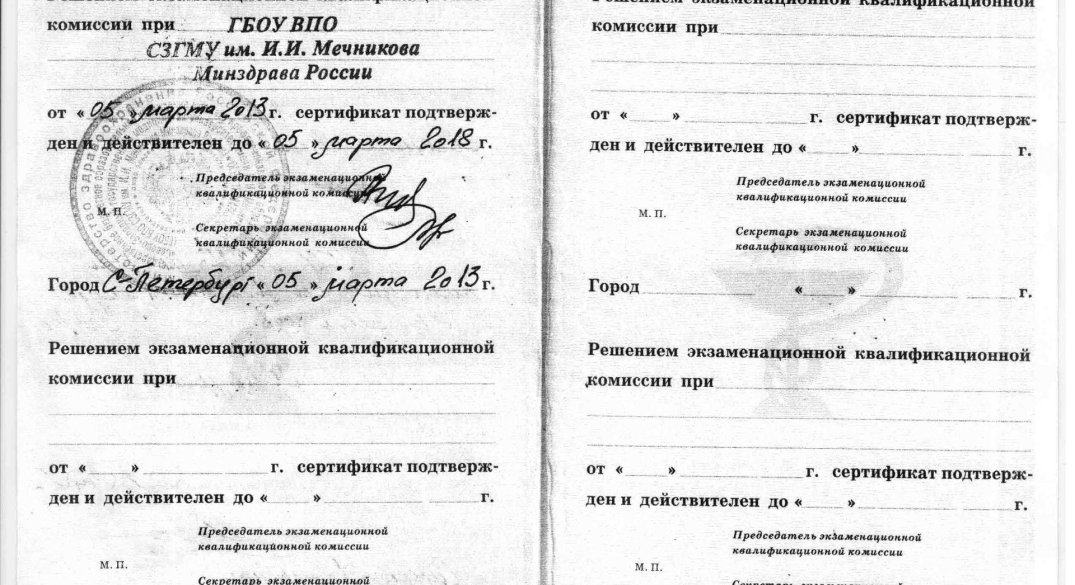 Решением экзаменационной квалификационной
комиссии при ГБОУ ВПО
СЗГМУ им. И.И. Мечникова
Минздрава России
от « 05 » марта 2013 г. сертификат подтверж-
ден и действителен до « 05 » марта 2018 г.
Председатель экзаменационной
квалификационной комиссии
М. П.
Секретарь экзаменационной
квалификационной комиссии
Город С-Петербург « 05 » марта 2013 г.
Решением экзаменационной квалификационной
комиссии при
от « » г. сертификат подтверж-
ден и действителен до « » г.
Председатель экзаменационной
квалификационной комиссии
М. П.
Секретарь экзаменационной
Решением экзаменационной квалификационной
комиссии при
от « » г. сертификат подтверж-
ден и действителен до « » г.
Председатель экзаменационной
квалификационной комиссии
М. П.
Секретарь экзаменационной
квалификационной комиссии
Город « » г.
Решением экзаменационной квалификационной
комиссии при
от « » г. сертификат подтверж-
ден и действителен до « » г.
Председатель экзаменационной
квалификационной комиссии
М. П.
Секретарь экзаменационной